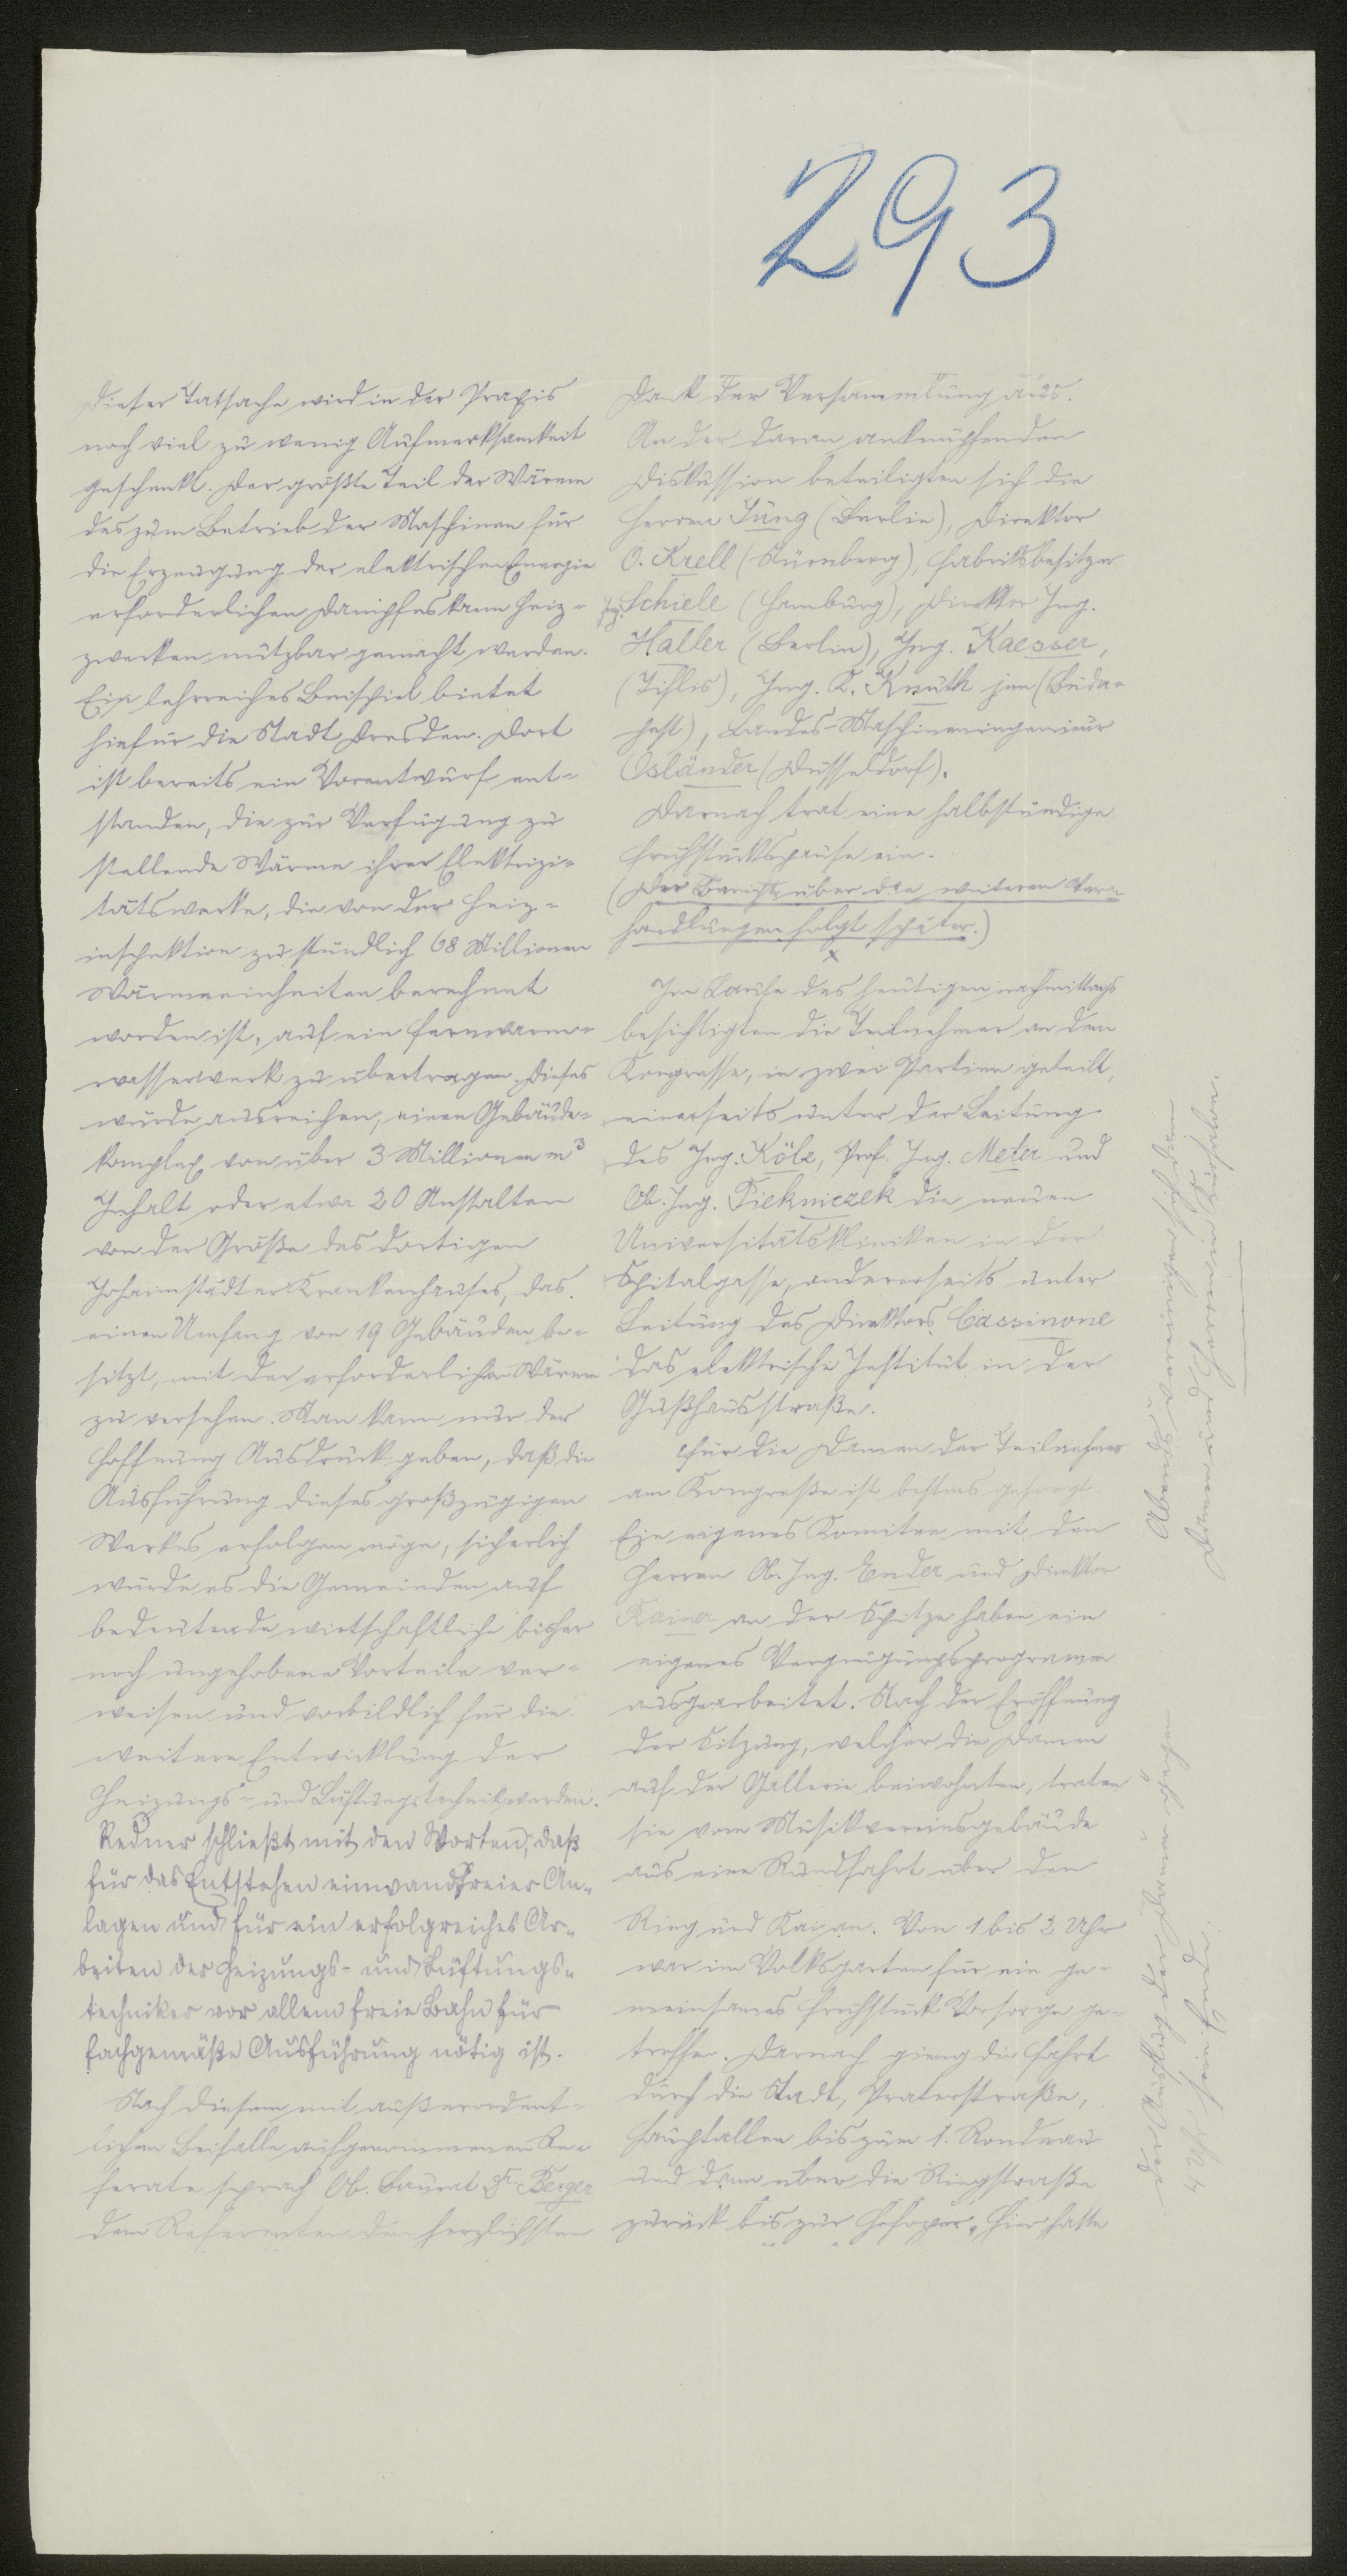 293
Dieser Tatsache wird in der Praxis
noch viel zu wenig Aufmerksamkeit
geschenkt. Der größte Teil der Wärme
des zum Betrieb der Maschinen für
die Erzeugung der elektrischen Energie
erforderlichen Dampfes kann Heiz=
zwecken nutzbar gemacht werden.
Ein lehrreiches Beispiel bietet
hiefür die Stadt Dresden. Dort
ist bereits ein Vorentwurf ent=
standen, die zur Verfügung zu
stellende Wärme ihrer Elektrizi=
tätswerke, die von der Heiz=
inspektion zu stündlich 68 Millionen
Wärmeeinheiten berechnet
worden ist, auf ein Fernwarm=
wasserwerk zu übertragen. Dieses
würde ausreichen, einen Gebäude=
komplex von über 3 Millionen m³
Inhalt oder etwa 20 Anstalten
von der Größe des dortigen
Johannstädter Krankenhauses, das
einen Umfang von 19 Gebäuden be=
sitzt, mit der erforderlichen Wärme
zu versehen. Man kann nur der
Hoffnung Ausdruck geben, daß die
Ausführung dieses großzügigen
Werkes erfolgen möge, sicherlich
würde es die Gemeinden auf
bedeutende wirtschaftliche bisher
noch ungehobene Vorteile ver=
weisen und vorbildlich für die
weitere Entwicklung der
Heizungs= und Lüftungstechnik werden.
Redner schließt mit den Worten, daß
für das Entstehen einwandfreier An=
lagen und für ein erfolgreiches Ar=
beiten der Heizungs- und Lüftungs=
techniker vor allem freie Bahn für
fachgemäße Ausführung nötig ist.
Nach diesem mit außerordent=
lichem Beifalle aufgenommenen Re=
ferate sprach Ob. Baurat Fr. Berger
dem Referenten den herzlichsten
Dank der Versammlung aus.
An der daran anknüpfenden
Diskussion beteiligten sich die
Herren Jung (Berlin), Direktor
O. Krell (Nürnberg), Fabriksbesitzer
Ing. Schiele (Hamburg), Direktor Ing.
Haller (Berlin), Ing. Kaesser,
(Tiflis), Ing. K. Knuth jun (Buda=
pest), Landes-Maschineningenieur
Osländer (Düsseldorf).
Darnach trat eine halbstündige
Frühstückspause ein.
(Der Bericht über die weiteren Ver=
handlungen folgt später.)
x
Im Laufe des heutigen nachmittags
besichtigten die Teilnehmer an dem
Kongresse, in zwei Partien geteilt,
einerseits unter der Leitung
des Ing. Kölz, Prof. Ing. Meter und
Ob. Ing. Fiekniczek die neuen
Universitätskliniken in der
Spitalgasse, andererseits unter
Leitung des Direktors Cassinone
das elektrische Institut in der
Gußhausstraße.
Für die Damen der Teilnehmer
am Kongreße ist bestens gesorgt
Ein eigenes Komitee mit den
Herren Ob. Ing. Ender und Direktor
Kainer an der Spitze haben ein
eigenes Vergnügungsprogramm
ausgearbeitet. Nach der Eröffnung
der Sitzung, welcher die Damen
auf der Gallerie beiwohnten, traten
sie vom Musikvereinsgebäude
aus eine Rundfahrt über den
Ring und Kai an. Von 1 bis 2 Uhr
war im Volksgarten für ein ge=
meinsames Frühstück Vorsorge ge=
troffen. Darnach gieng die Fahrt
durch die Stadt, Praterstraße,
Hauptallee bis zum 1. Rondeau
und dann über die Ringstraße
zurück bis zur Hofoper. Hier hatte
der Ausflug der Damen gegen
4 Uhr sein Ende.
Abends vereinigen sich dann
Damen und Herren im Kursalon.